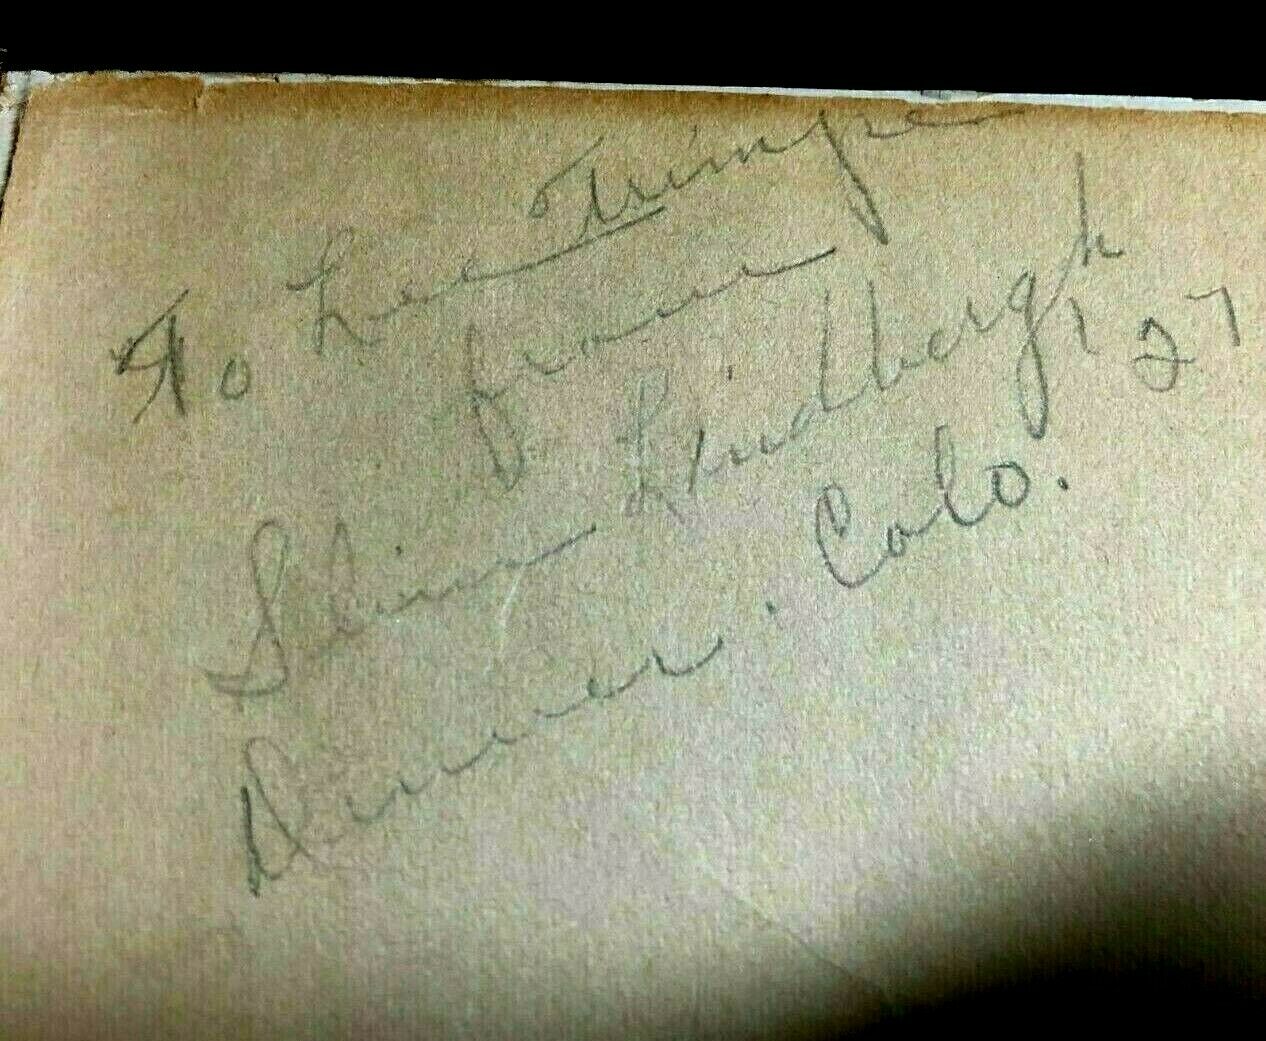 To Lee Trimpe
from
Slim Lindbergh 27
Denver. Colo.